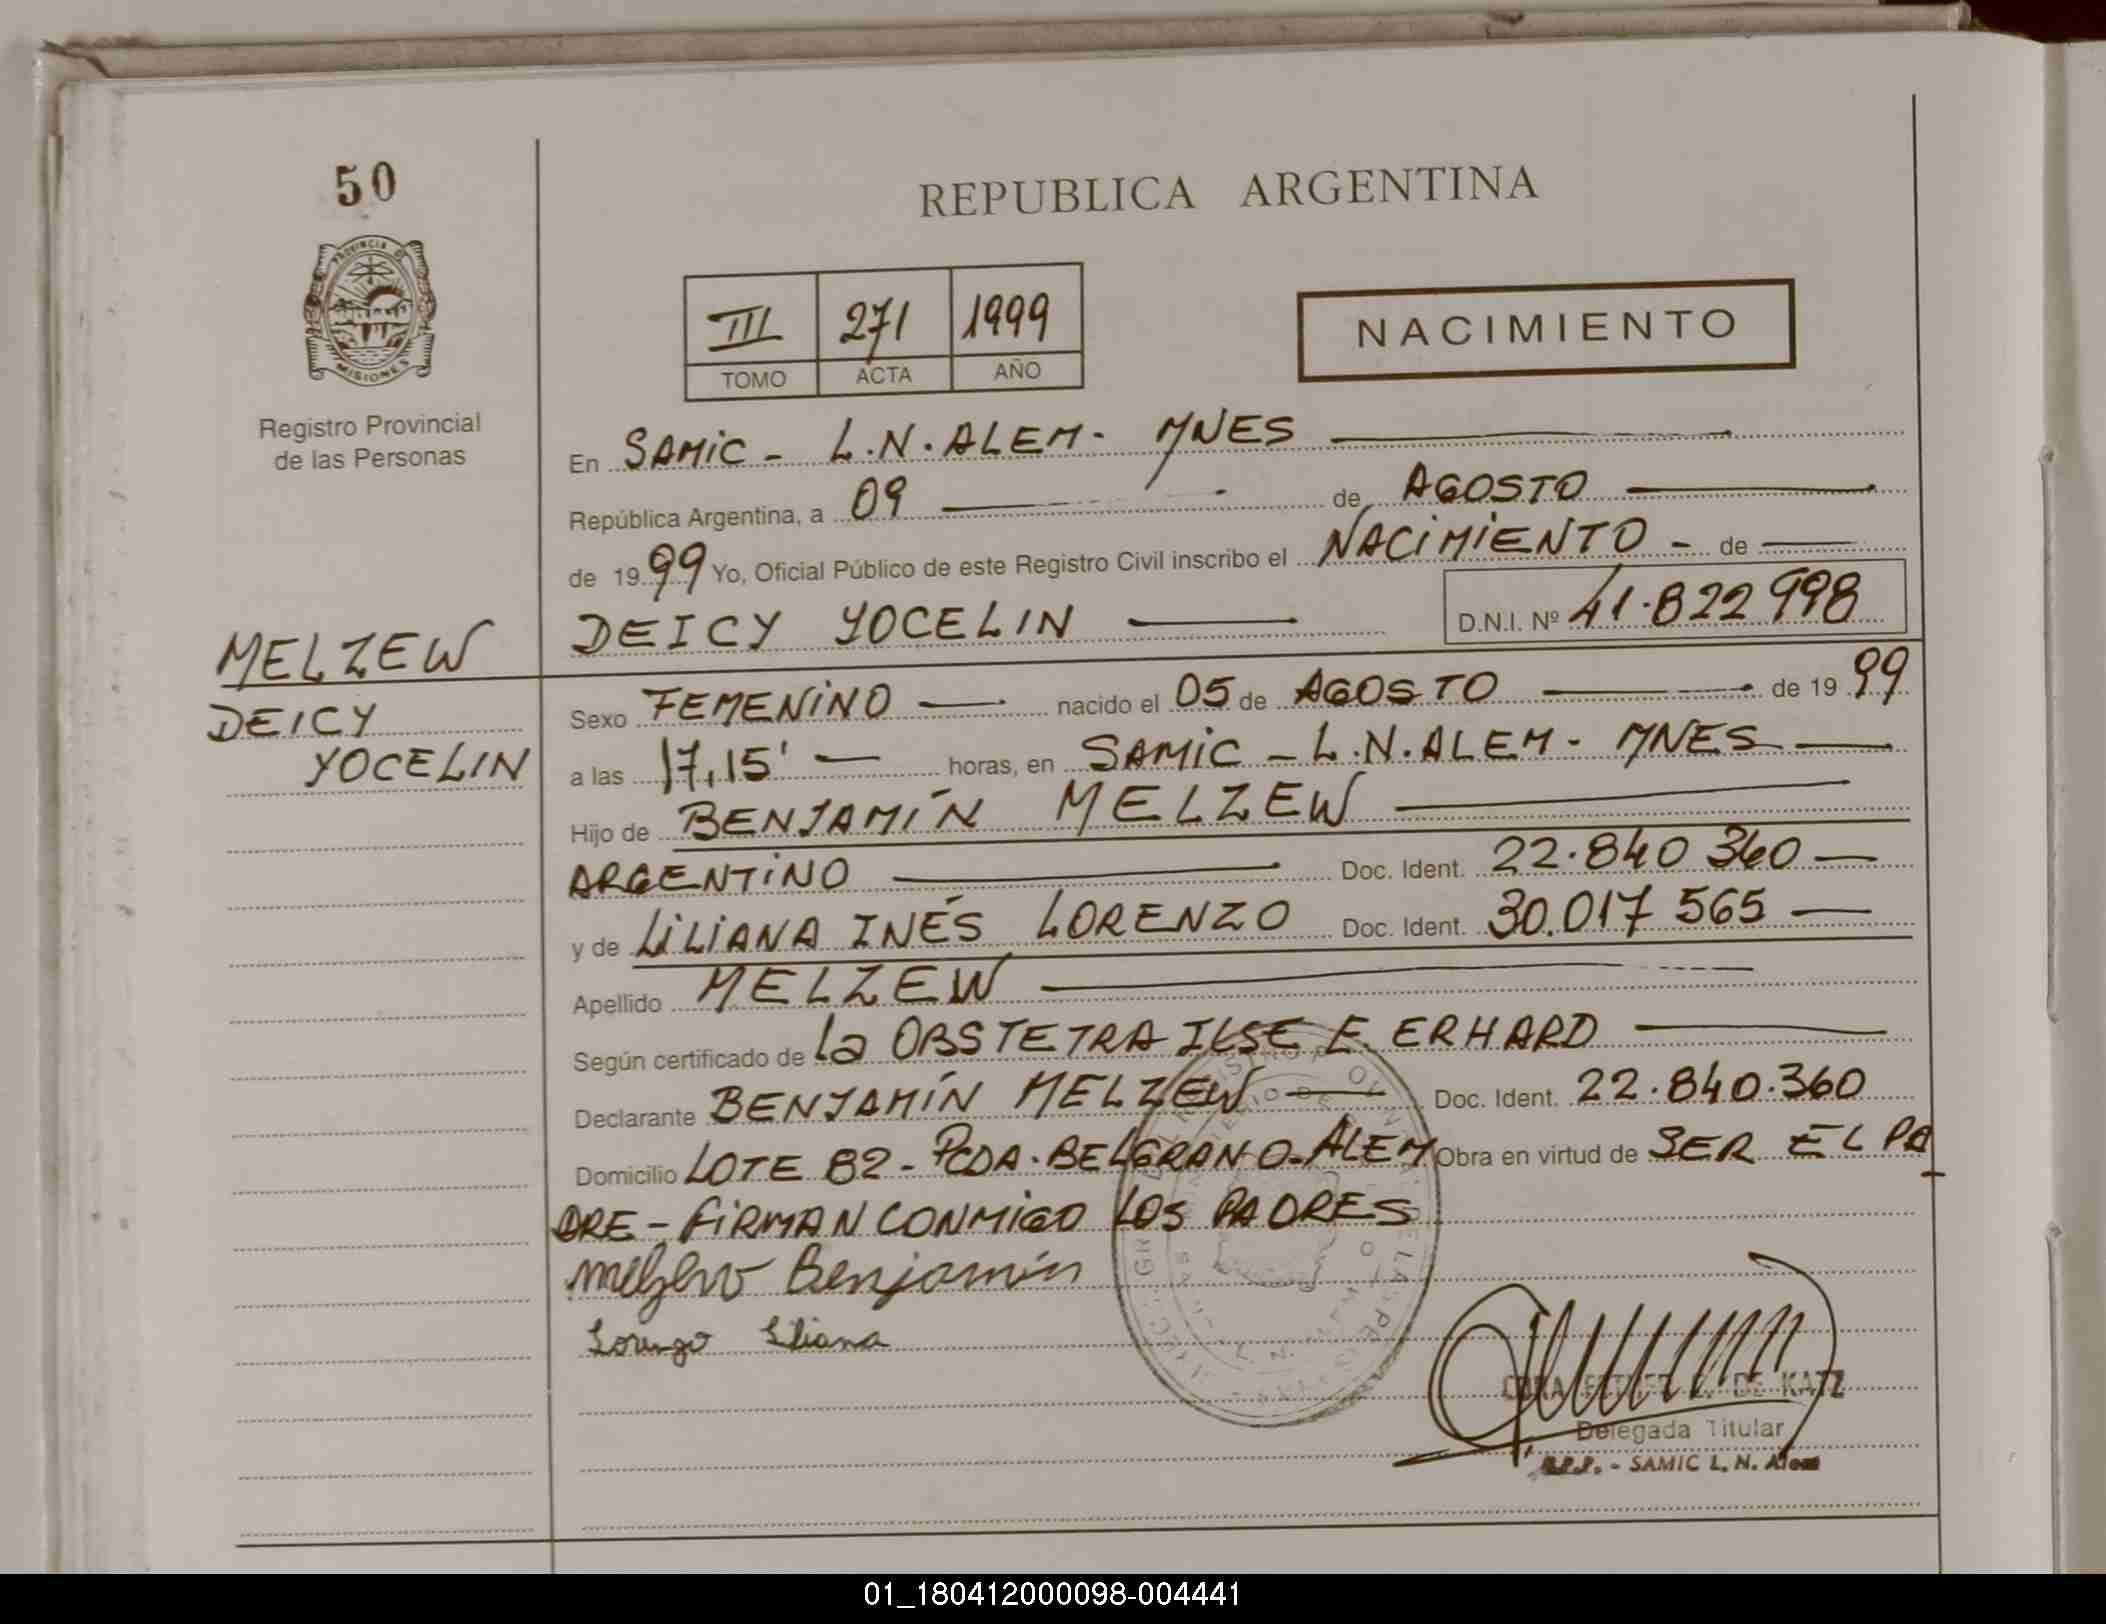 50
REPUBLICA ARGENTINA
PROVINCIA DE
MISIONES
III 271 1999
TOMO ACTA AÑO
NACIMIENTO
Registro Provincial
de las Personas
En SAMIC - L.N. ALEM - MNES
República Argentina, a 09 de AGOSTO
de 1999 Yo, Oficial Público de este Registro Civil inscribo el NACIMIENTO - de
DEICY YOCELIN D.N.I. Nº 41.822 998
MELZEW
DEICY
YOCELIN
Sexo FEMENINO nacido el 05 de AGOSTO de 1999
a las 17,15' horas, en SAMIC - L.N. ALEM - MNES
Hijo de BENJAMÍN MELZEW
ARGENTINO Doc. Ident. 22.840 360
y de LILIANA INÉS LORENZO Doc. Ident. 30.017 565
Apellido MELZEW
Según certificado de la OBSTETRA ILSE E. ERHARD
Declarante BENJAMÍN MELZEW Doc. Ident. 22.840.360
Domicilio LOTE 82 - PCDA. BELGRANO - ALEM Obra en virtud de SER EL PA
DRE - FIRMAN CONMIGO LOS PADRES
Melzew Benjamín
Lorenzo Liliana
DE KATZ
Delegada Titular
R.P.P. - SAMIC L. N. Alem
01_180412000098-004441